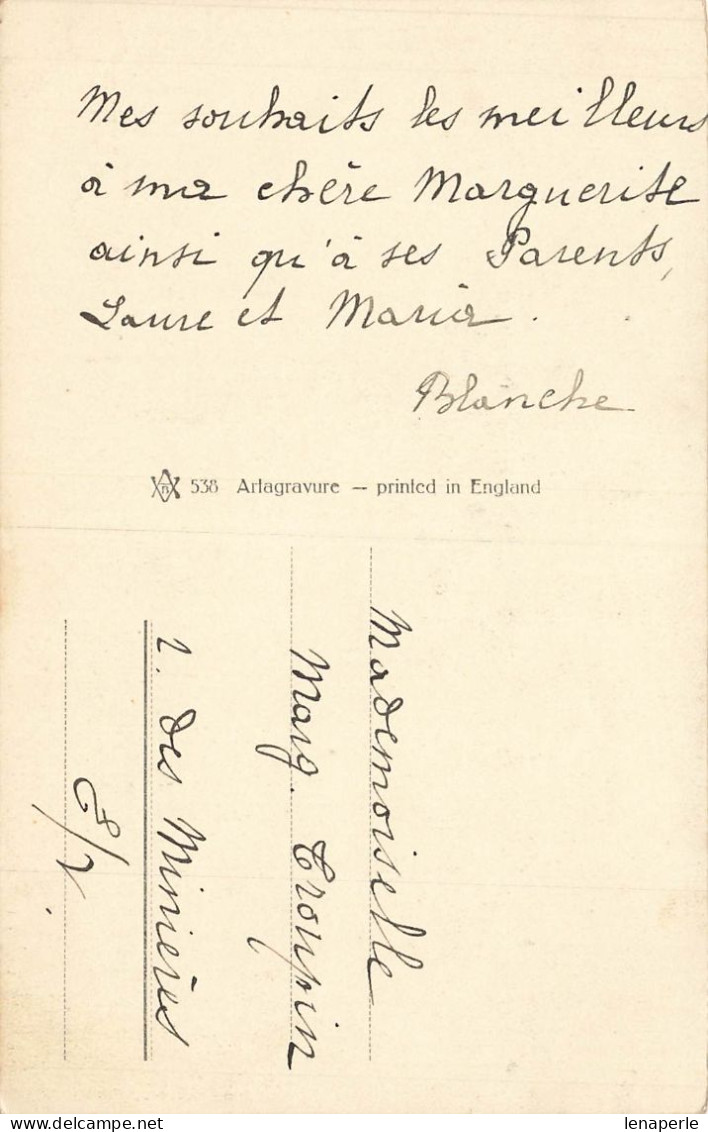 Mes souhaits les meilleurs
à ma chère Marguerite
ainsi qu'à ses Parents,
Laure et Maria.
Blanche
538 Artagravure — printed in England
Mademoiselle
Marg. Troupin
des Minières
E/V.
lenaperle